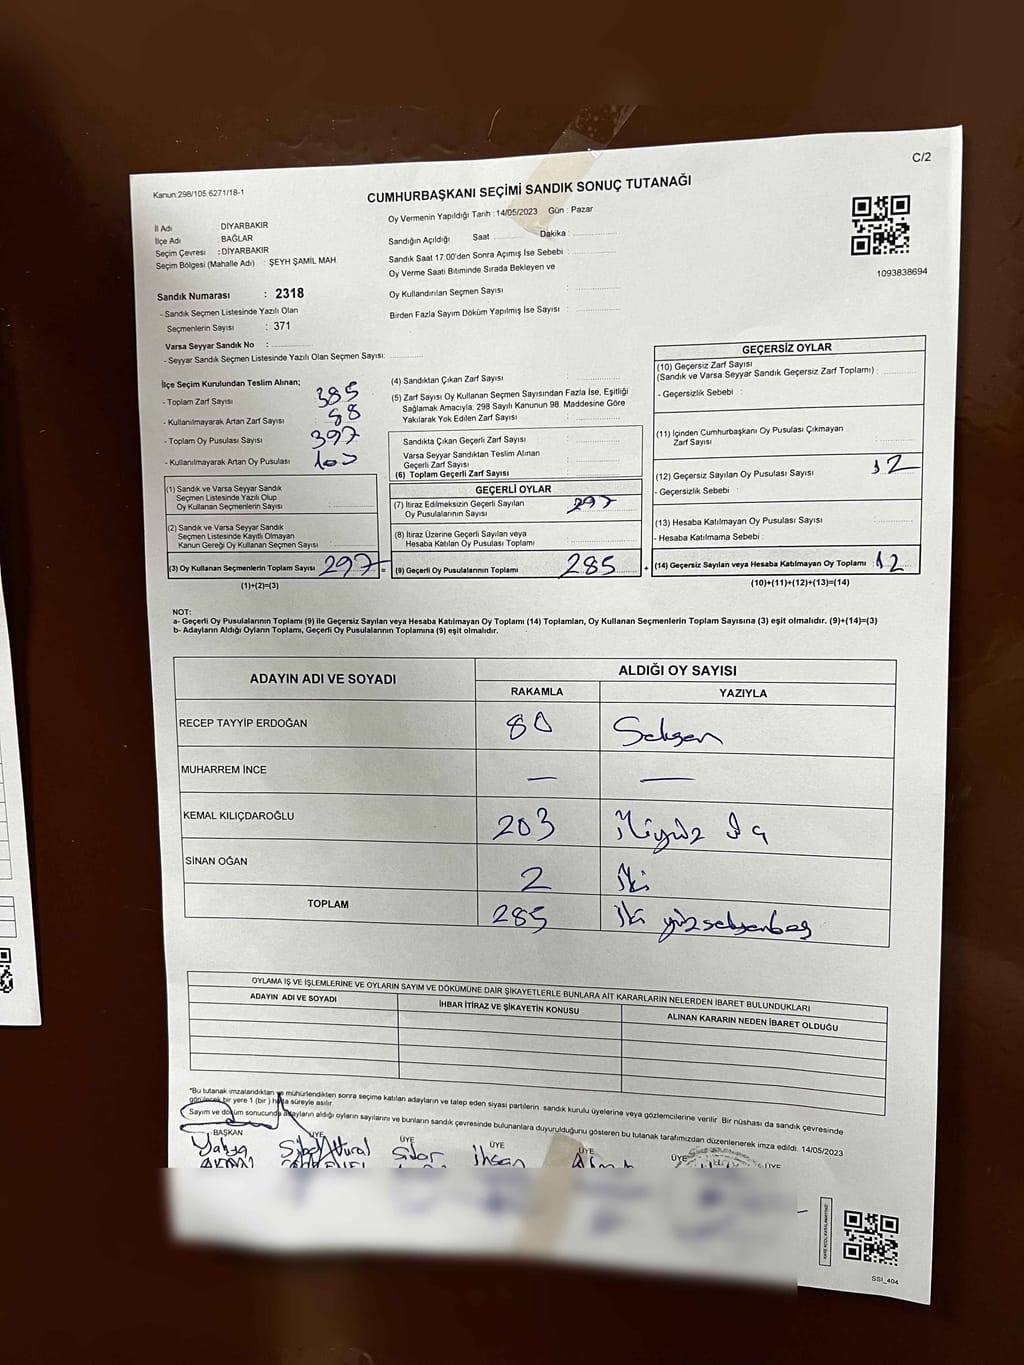 C/2
Kanun:298/105,6271/18-1
CUMHURBAŞKANI SEÇİMİ SANDIK SONUÇ TUTANAĞI
Oy Vermenin Yapıldığı Tarih : 14/05/2023 Gün : Pazar
İl Adı : DİYARBAKIR
İlçe Adı : BAĞLAR
Seçim Çevresi : DİYARBAKIR
Seçim Bölgesi (Mahalle Adı) : ŞEYH ŞAMİL MAH
Sandığın Açıldığı Saat : Dakika :
Sandık Saat 17:00'den Sonra Açımış İse Sebebi :
Oy Verme Saati Bitiminde Sırada Bekleyen ve
Oy Kullandırılan Seçmen Sayısı :
Birden Fazla Sayım Döküm Yapılmış İse Sayısı :
1093838694
Sandık Numarası : 2318
- Sandık Seçmen Listesinde Yazılı Olan
Seçmenlerin Sayısı : 371
Varsa Seyyar Sandık No :
- Seyyar Sandık Seçmen Listesinde Yazılı Olan Seçmen Sayısı:
İlçe Seçim Kurulundan Teslim Alınan;
- Toplam Zarf Sayısı 385
- Kullanılmayarak Artan Zarf Sayısı 88
- Toplam Oy Pusulası Sayısı 397
- Kullanılmayarak Artan Oy Pusulası 100
(1) Sandık ve Varsa Seyyar Sandık
Seçmen Listesinde Yazılı Olup
Oy Kullanan Seçmenlerin Sayısı :
(2) Sandık ve Varsa Seyyar Sandık
Seçmen Listesinde Kayıtlı Olmayan
Kanun Gereği Oy Kullanan Seçmen Sayısı :
(3) Oy Kullanan Seçmenlerin Toplam Sayısı 297 =
(1)+(2)=(3)
(4) Sandıktan Çıkan Zarf Sayısı :
(5) Zarf Sayısı Oy Kullanan Seçmen Sayısından Fazla İse, Eşitliği
Sağlamak Amacıyla; 298 Sayılı Kanunun 98. Maddesine Göre
Yakılarak Yok Edilen Zarf Sayısı :
Sandıkta Çıkan Geçerli Zarf Sayısı :
Varsa Seyyar Sandıktan Teslim Alınan
Geçerli Zarf Sayısı :
(6) Toplam Geçerli Zarf Sayısı :
GEÇERLİ OYLAR
(7) İtiraz Edilmeksizin Geçerli Sayılan
Oy Pusulalarının Sayısı 297
(8) İtiraz Üzerine Geçerli Sayılan veya
Hesaba Katılan Oy Pusulası Toplamı :
(9) Geçerli Oy Pusulalarının Toplamı 285 +
GEÇERSİZ OYLAR
(10) Geçersiz Zarf Sayısı
(Sandık ve Varsa Seyyar Sandık Geçersiz Zarf Toplamı) :
- Geçersizlik Sebebi :
(11) İçinden Cumhurbaşkanı Oy Pusulası Çıkmayan
Zarf Sayısı :
(12) Geçersiz Sayılan Oy Pusulası Sayısı 12
- Geçersizlik Sebebi :
(13) Hesaba Katılmayan Oy Pusulası Sayısı :
- Hesaba Katılmama Sebebi :
(14) Geçersiz Sayılan veya Hesaba Katılmayan Oy Toplamı : 12
(10)+(11)+(12)+(13)=(14)
NOT:
a- Geçerli Oy Pusulalarının Toplamı (9) ile Geçersiz Sayılan veya Hesaba Katılmayan Oy Toplamı (14) Toplamları, Oy Kullanan Seçmenlerin Toplam Sayısına (3) eşit olmalıdır. (9)+(14)=(3)
b- Adayların Aldığı Oyların Toplamı, Geçerli Oy Pusulalarının Toplamına (9) eşit olmalıdır.
ADAYIN ADI VE SOYADI ALDIĞI OY SAYISI
RAKAMLA YAZIYLA
RECEP TAYYİP ERDOĞAN 80 Seksen
MUHARREM İNCE — —
KEMAL KILIÇDAROĞLU 203 İkiyüz
SİNAN OĞAN 2 İki
TOPLAM 285 İki yüzseksenbeş
OYLAMA İŞ VE İŞLEMLERİNE VE OYLARIN SAYIM VE DÖKÜMÜNE DAİR ŞİKAYETLERLE BUNLARA AİT KARARLARIN NELERDEN İBARET BULUNDUKLARI
ADAYIN ADI VE SOYADI İHBAR İTİRAZ VE ŞİKAYETİN KONUSU ALINAN KARARIN NEDEN İBARET OLDUĞU
*Bu tutanak imzalandıktan ve mühürlendikten sonra seçime katılan adayların ve talep eden siyasi partilerin sandık kurulu üyelerine veya gözlemcilerine verilir. Bir nüshası da sandık çevresinde
görülecek bir yere 1 (bir) hafta süreyle asılır.
Sayım ve döküm sonucunda adayların aldığı oyların sayılarını ve bunların sandık çevresinde bulunanlara duyurulduğunu gösteren bu tutanak tarafımızdan düzenlenerek imza edildi. 14/05/2023
BAŞKAN ÜYE ÜYE ÜYE ÜYE ÜYE ÜYE
Yahya Sibel Attural Sidar İhsan
SSI_404